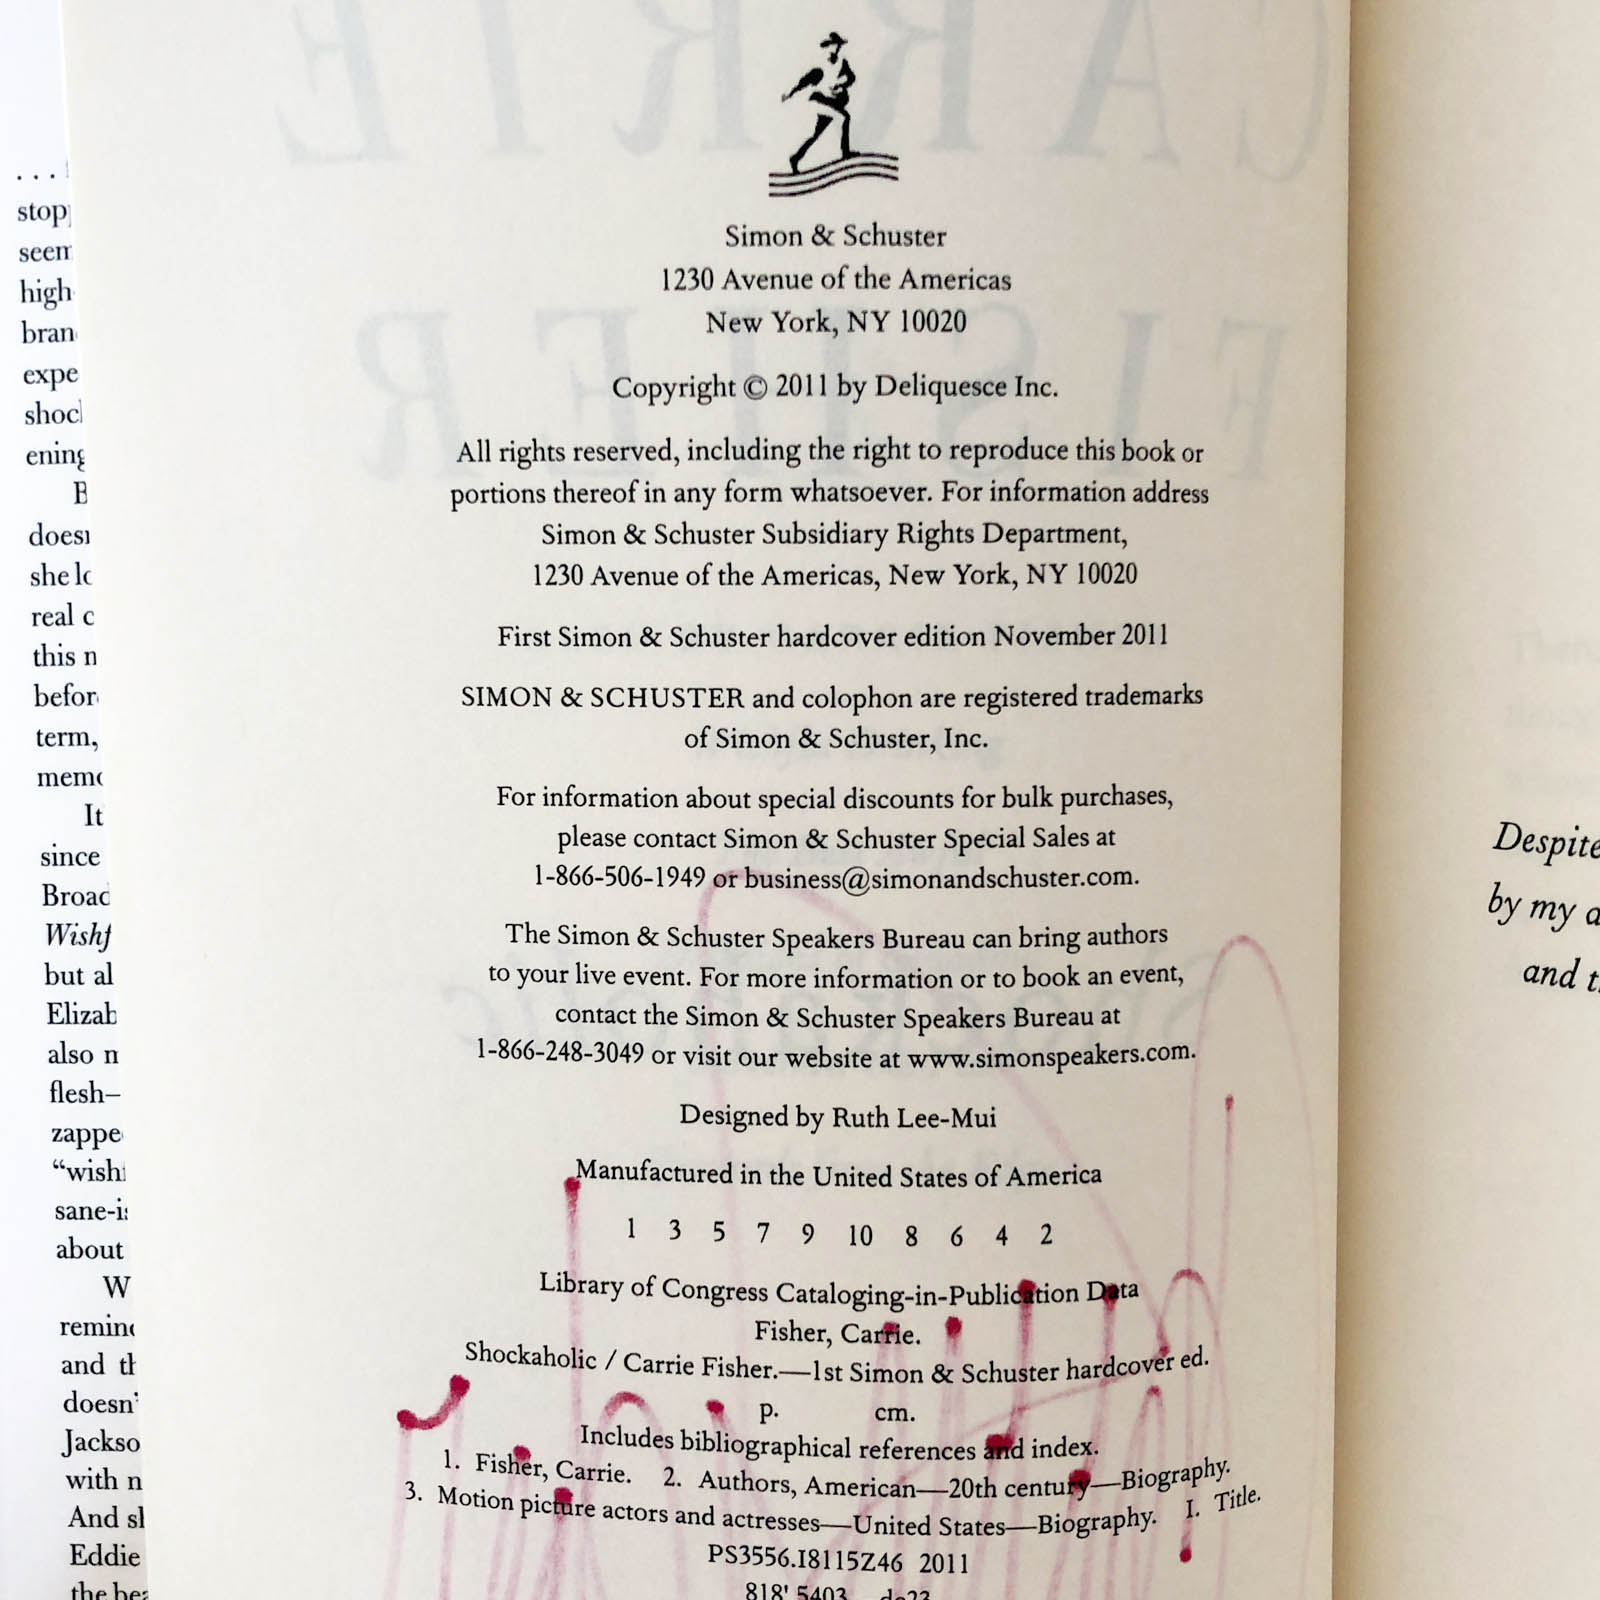 stop
seem
high
bran
expe
shoc
ening
doesn
she lo
real c
this n
befor
term,
memo
It
since
Broad
Wishf
but al
Elizab
also n
flesh—
zappe
“wish
sane-is
about
W
remin
and th
doesn’
Jackso
with n
And sh
Eddie
the bea
CARRIE
FISHER
Simon & Schuster
1230 Avenue of the Americas
New York, NY 10020
Copyright © 2011 by Deliquesce Inc.
All rights reserved, including the right to reproduce this book or
portions thereof in any form whatsoever. For information address
Simon & Schuster Subsidiary Rights Department,
1230 Avenue of the Americas, New York, NY 10020
First Simon & Schuster hardcover edition November 2011
SIMON & SCHUSTER and colophon are registered trademarks
of Simon & Schuster, Inc.
For information about special discounts for bulk purchases,
please contact Simon & Schuster Special Sales at
1-866-506-1949 or business@simonandschuster.com.
The Simon & Schuster Speakers Bureau can bring authors
to your live event. For more information or to book an event,
contact the Simon & Schuster Speakers Bureau at
1-866-248-3049 or visit our website at www.simonspeakers.com.
Designed by Ruth Lee-Mui
Manufactured in the United States of America
1 3 5 7 9 10 8 6 4 2
Library of Congress Cataloging-in-Publication Data
Fisher, Carrie.
Shockaholic / Carrie Fisher.—1st Simon & Schuster hardcover ed.
p. cm.
Includes bibliographical references and index.
1. Fisher, Carrie. 2. Authors, American—20th century—Biography.
3. Motion picture actors and actresses—United States—Biography. I. Title.
PS3556.I8115Z46 2011
818' 5403—dc23
Despite
by my a
and t